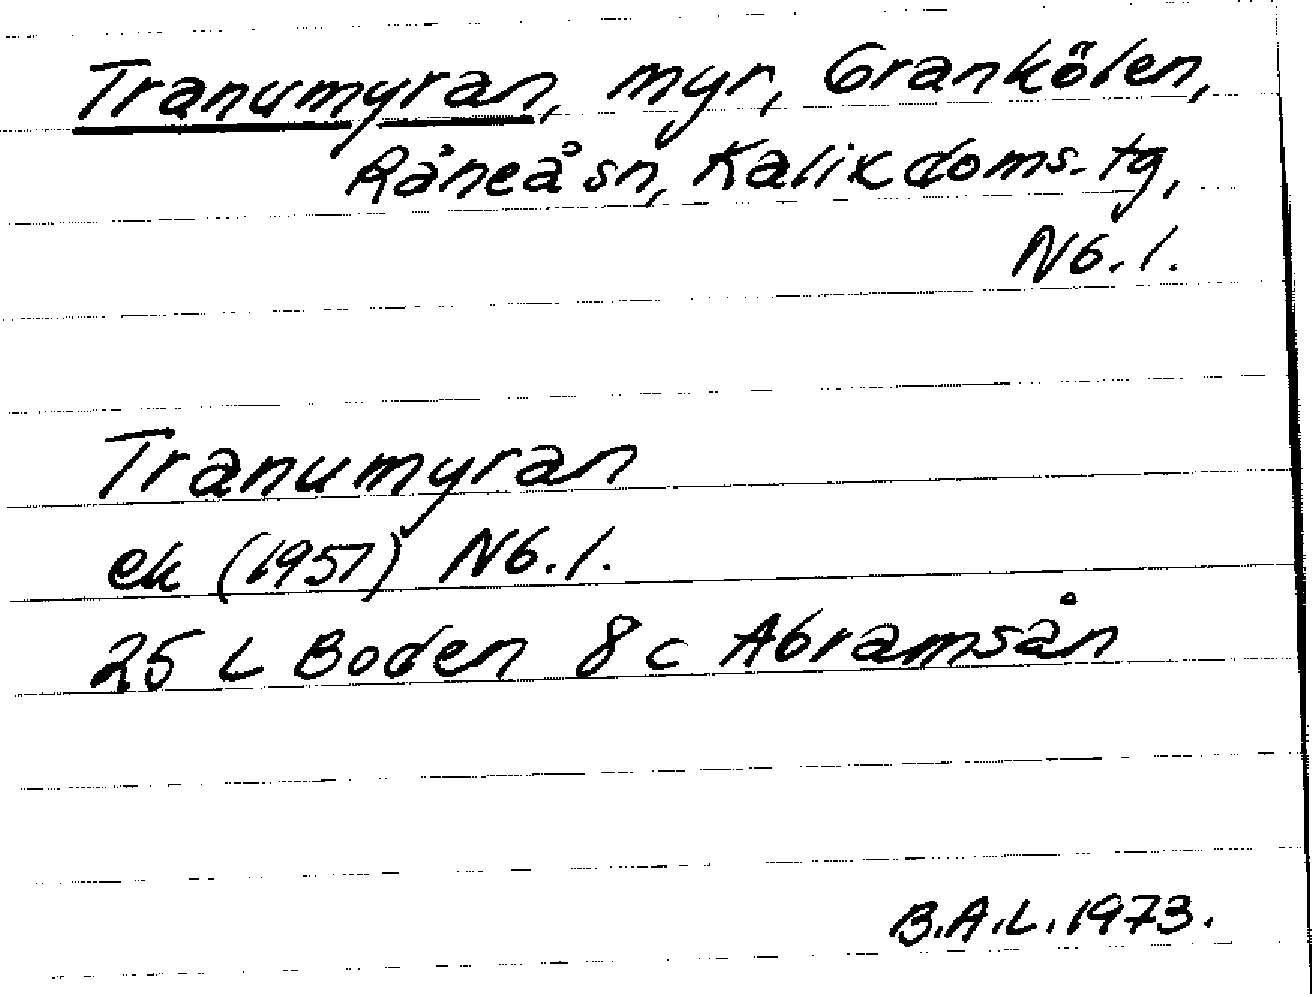 Tranumyran, myr, Grankölen,
Råneå sn, Kalix doms.tg,
Nb. l.
Tranumyran
ek (1957) Nb. l.
25 L Boden 8 c Abramsån
B.A.L. 1973.